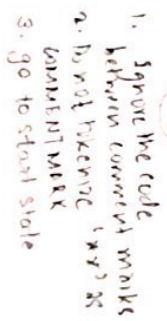 1. Ignore the code
between comment marks
2. Do not tokenize '**' as
COMMENTMARK
3. go to start state